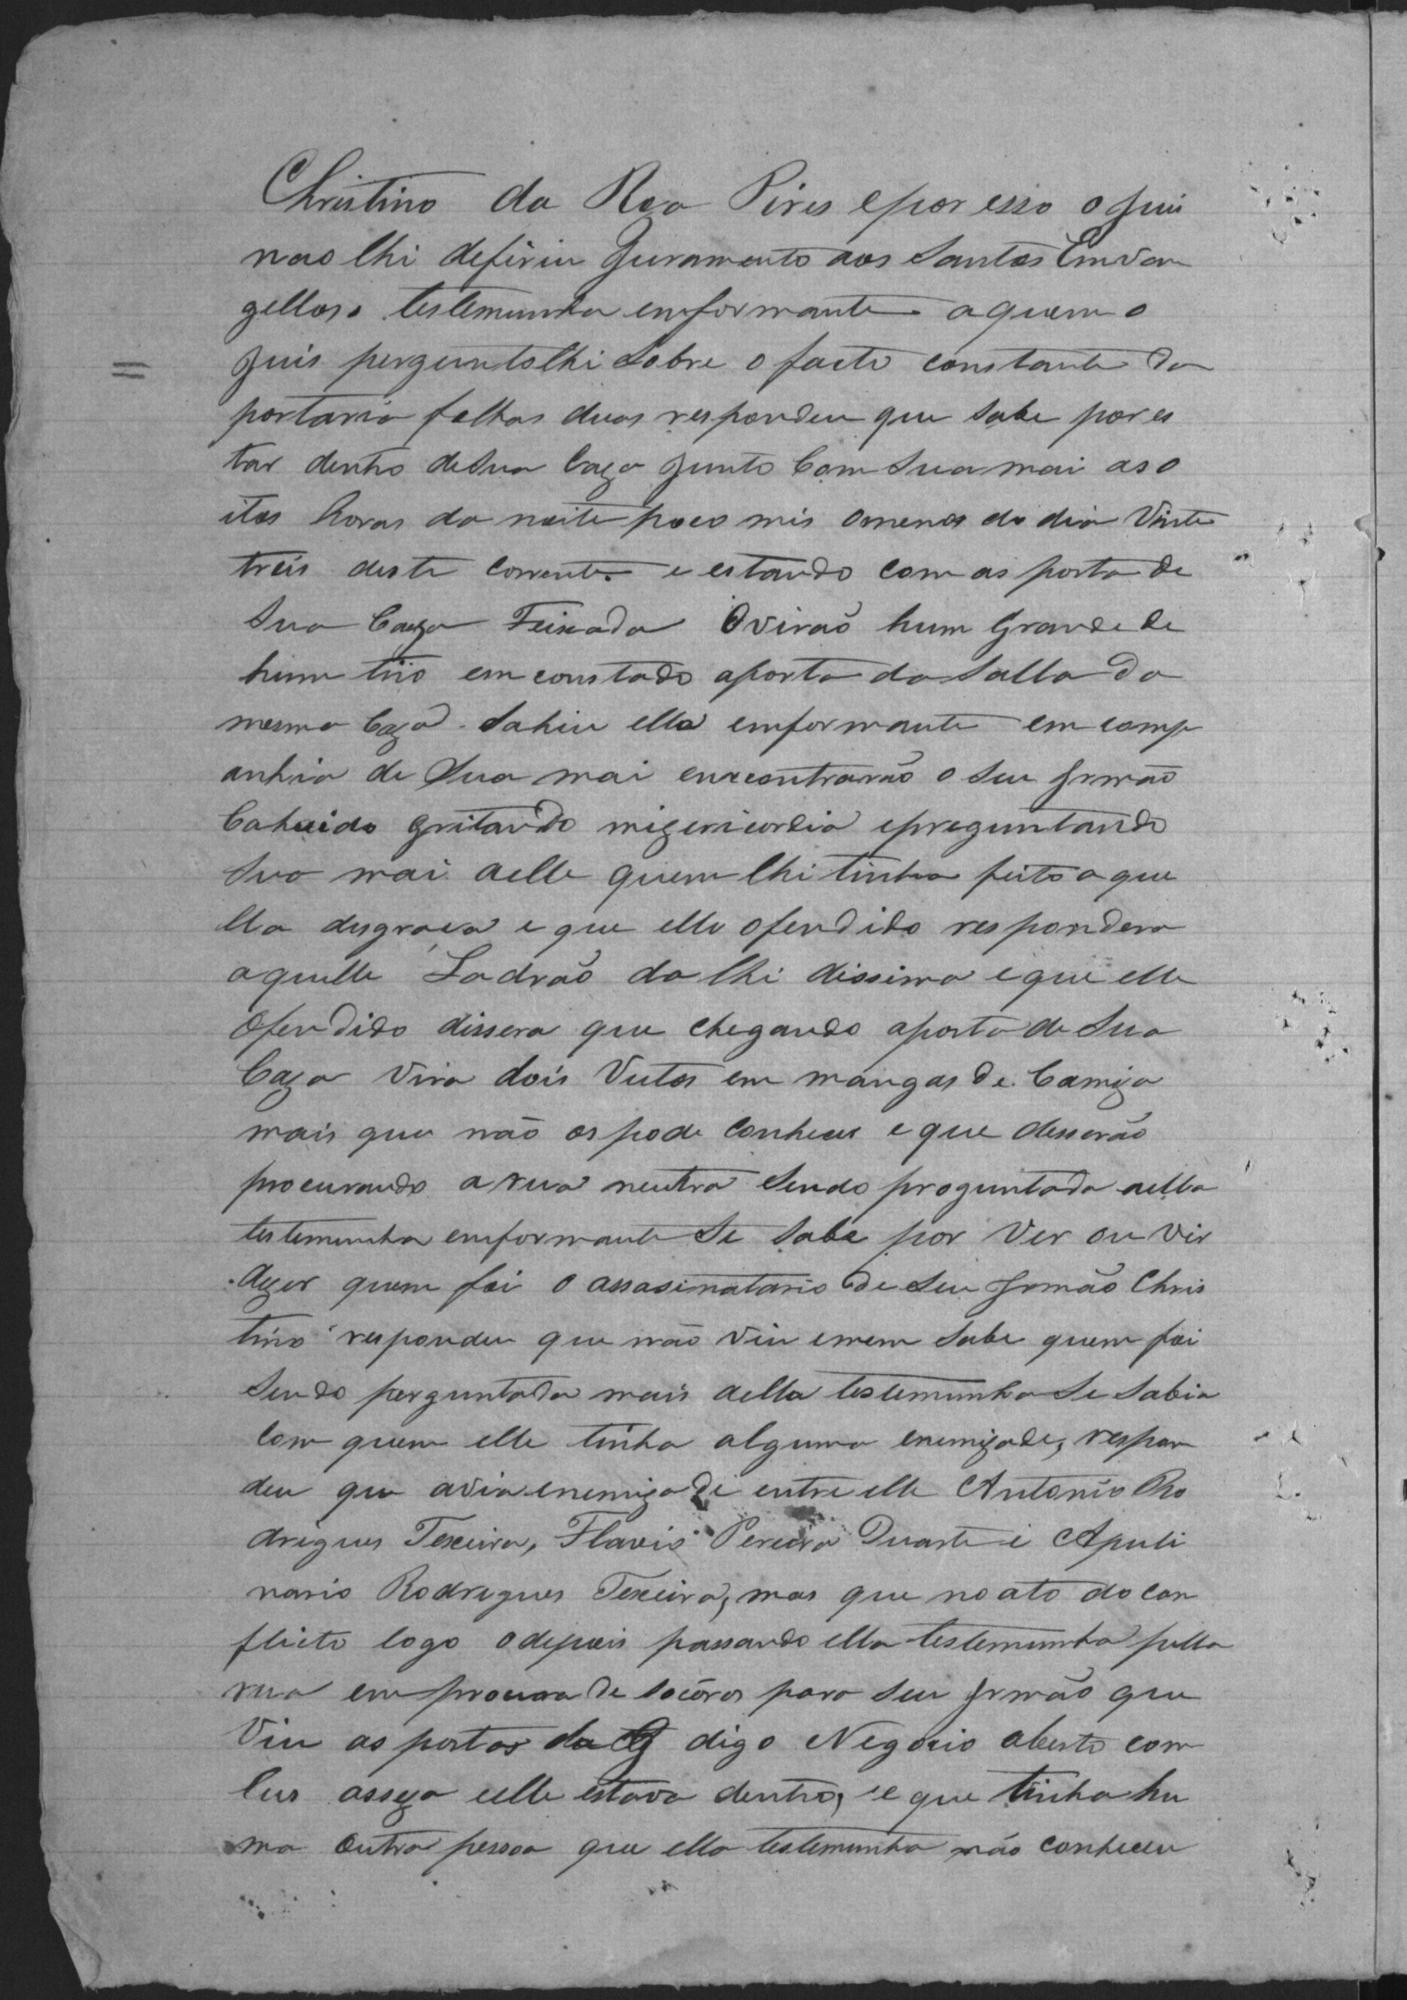 Christino da Roa Pires epor esso o juis
nao lhi defiriu Juramento aos Santos Emvan
gellos. testemunha emformante aquem o
Juis perguntolhi sobre o facto constante da
portaria folhas duas respondeu que sabe por es
tar dentro desua Caza junto Com Sua mai as o
itos horas da noite poco mis omenos do dia Vinte
treis deste corrente e estando com as porta de
Sua Caza Feixada Ovirão hum Grande de
hum tiio em costado aporta da Salla da
mesma Caza Sahiu ella emformante em comp
anhia de Sua mai encontrarão o Seu Irmão
Cahido gritando mizericordia epreguntando
Sua mai aelle quem lhi tinha feito a que
lla desgraca e que elle ofendido respondera
aquelle Ladrão da lhi dissima e que elle
Ofendido dissera que chegando aporta de Sua
Caza Vira dois Vutos em mangas de Camiza
mais que não os pode conhecer e que desserão
procurando a rua neutra Sendo proguntada aella
testemunha emformante Se Sabe por Ver ou Vir
dizer quem foi o assasinatario de Seu Irmão Chris
tino respondeu que não Viu enem Sabe quem foi
Sendo perguntada mais aella testemunha Se Sabia
Com quem elle tinha alguma enemizade, respon
deu que avia enemizade entre elle Antonio Ro
drigues Texeira, Flavio Pereira Duarte i Apuli
nario Rodrigues Texeira, mas que no ato do con
flicto logo odepois passando ella testemunha pella
rua em procura de Socóros para Seu Irmão que
Viu as portas da digo Negocio aberto com
lus asseza eelle estava dentro, e que tinha hu
ma outra pessoa que ella testemunha não conheceu